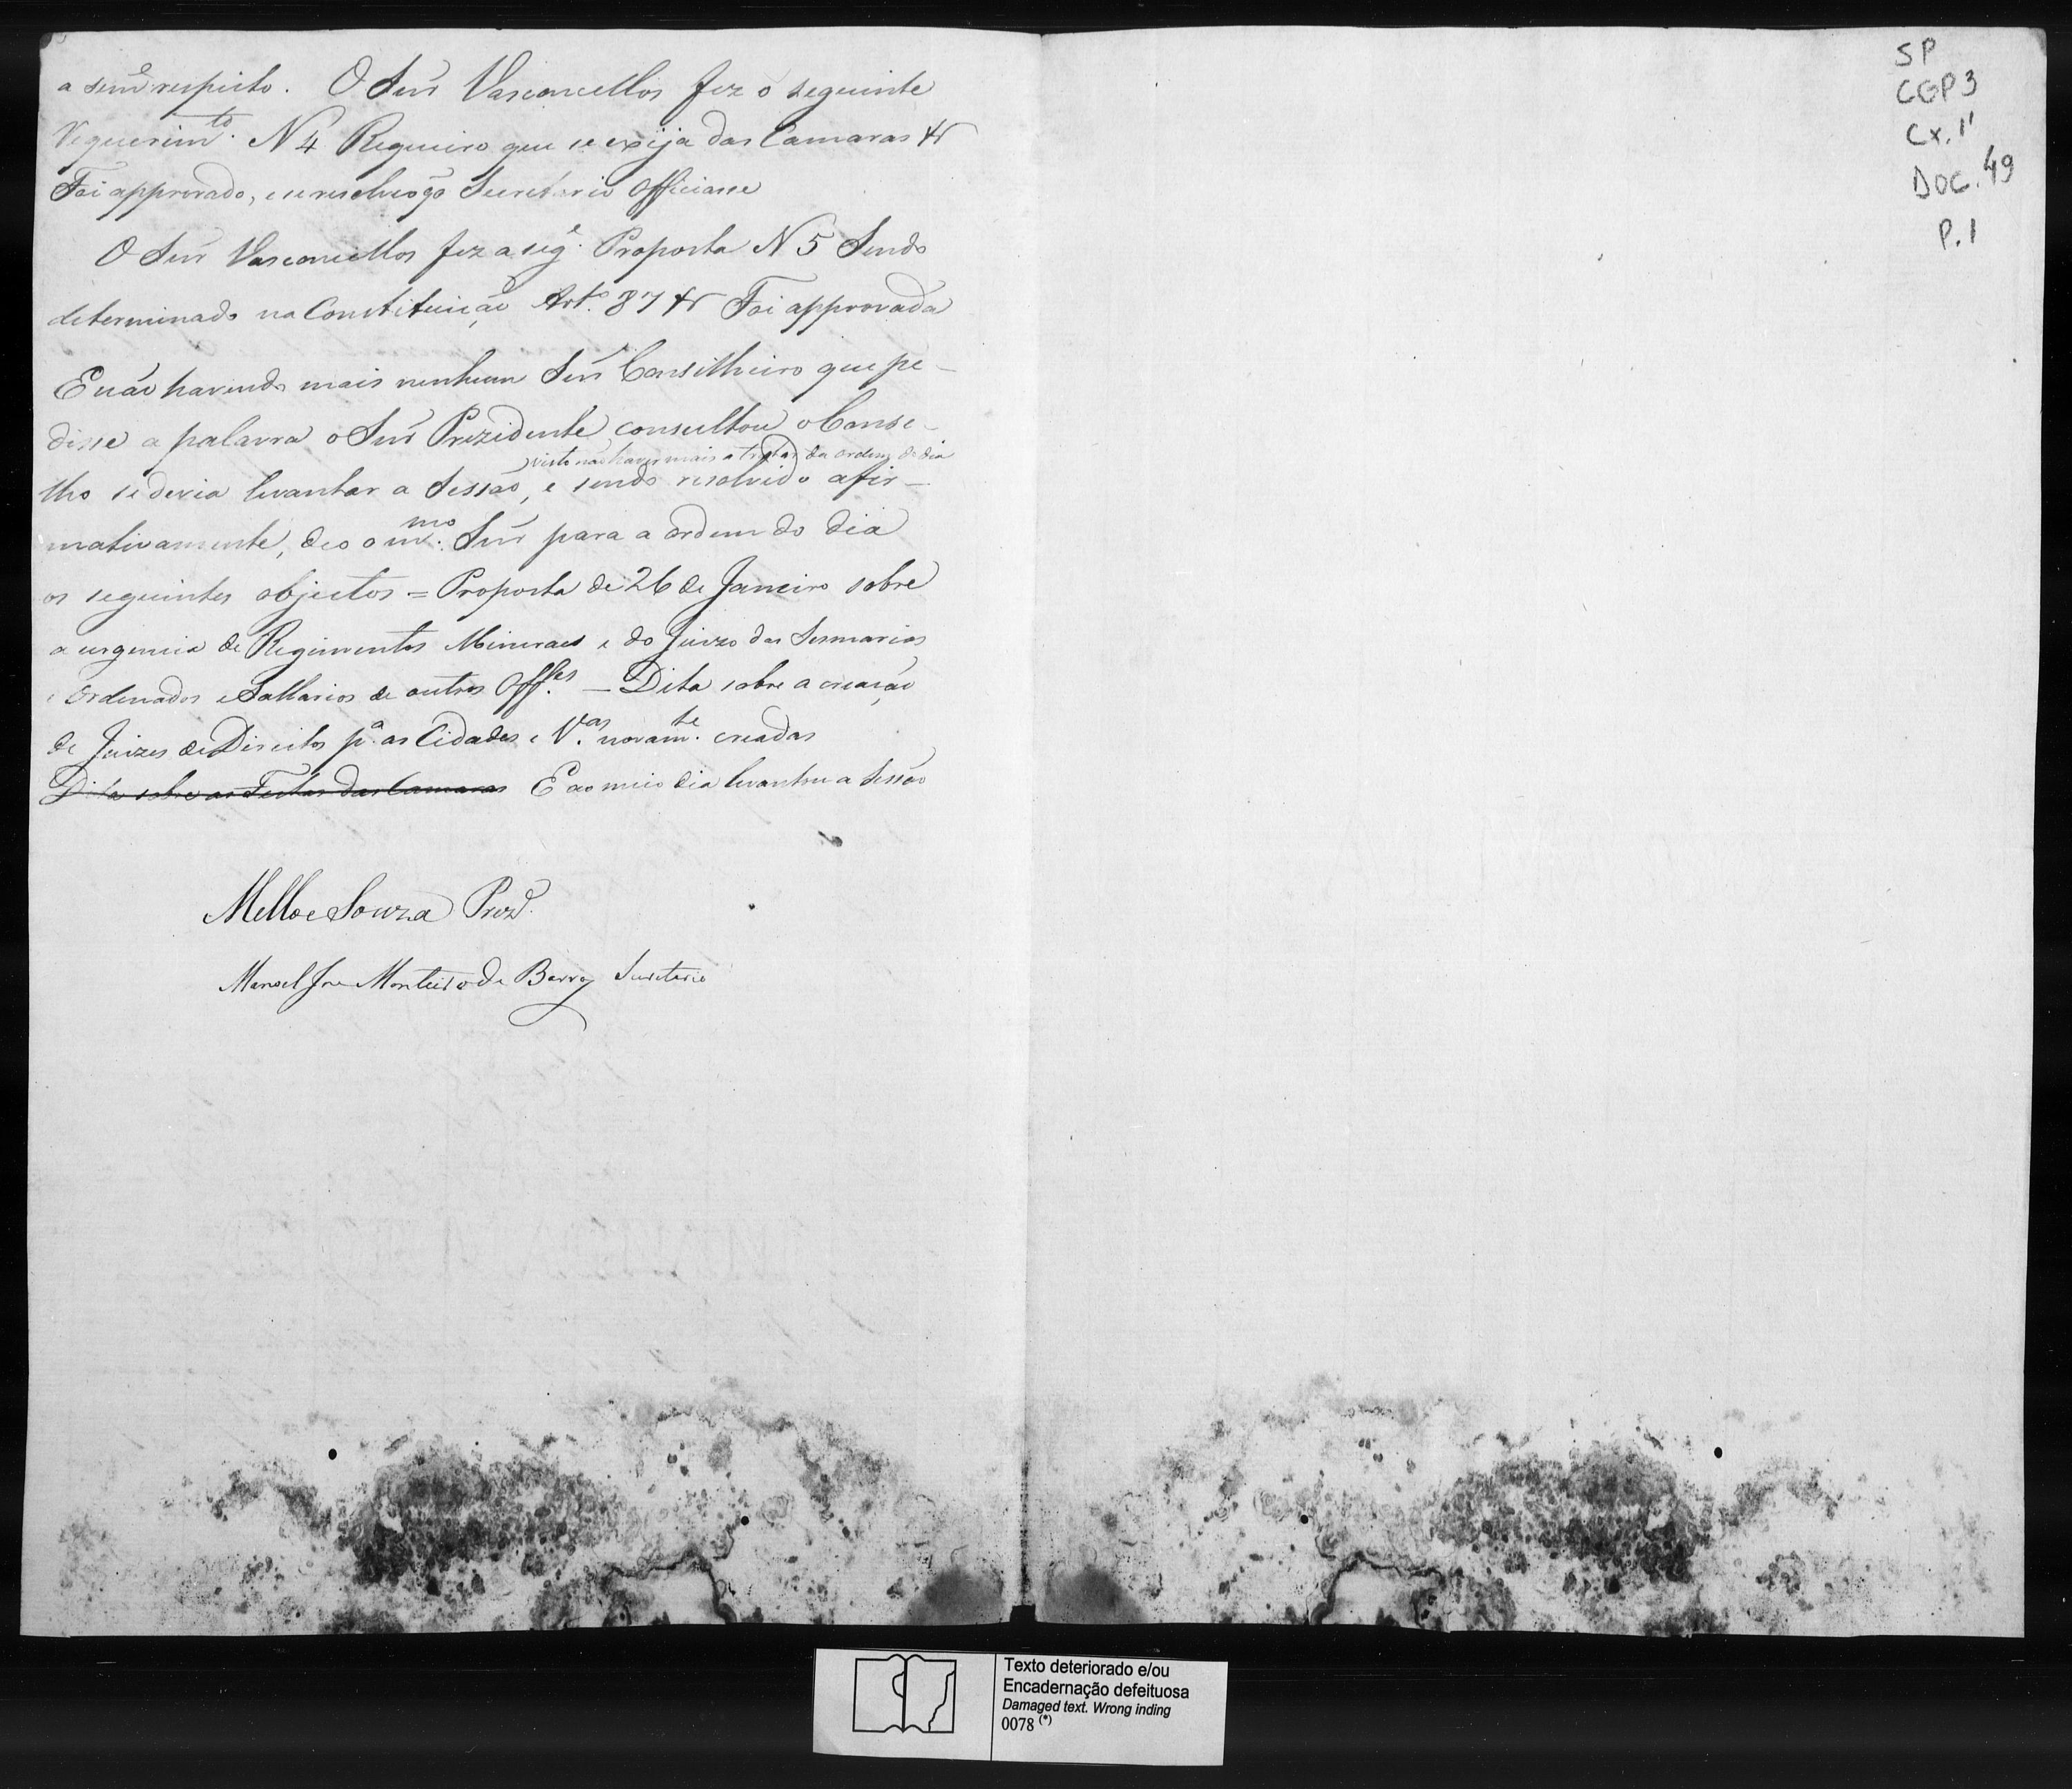 a sem.e respeito. O Snr Vasconcellos fez o seguinte
Requerim.to N 4 Requeiro que se exija das Camaras &
Foi approvado, e se resolveo q̃ o Secretario Officiasse
O Snr Vasconcellos fez a seg.e Proposta N 5 Sendo
determinado na Constituição Art.o 87 & Foi approvada
E não havendo mais nenhum Snr Conselheiro que pe-
disse a palavra o Snr Prezidente consultou o Conse-
visto não haver mais a tratar da ordem do dia
lho se devia levantar a Sessão, e sendo resolvido afir-
mativamente, deo o m.mo Snr para a ordem do dia
os seguintes objectos = Proposta de 26 de Janeiro sobre
a urgencia de Regimentos Mineraes e do Juizo das Sesmarias
e Ordenados e Sallarios de outros Off.es — Dita sobre a creação
de Juizes de Direitos p.a as Cidades e V.as novam.te creadas
Dita sobre as Festas das Camaras E ao meio dia levantou a Sessão
Mello e Souza Prez.e
Manoel Joze Monteiro de Barros Secretario
SP
CGP3
Cx. 1
Doc. 49
P. 1
Texto deteriorado e/ou
Encadernação defeituosa
Damaged text. Wrong inding
0078 (*)